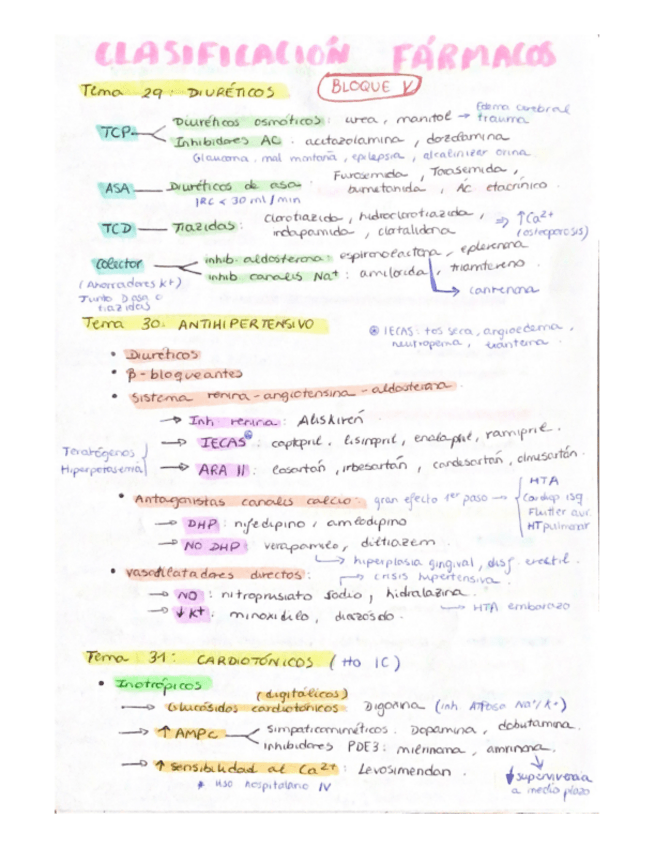 CLASIFICACIÓN FÁRMACOS
Tema 29: DIURÉTICOS BLOQUE V
TCP Diuréticos osmóticos: urea, manitol → Edema cerebral trauma
Inhibidores AC: acetazolamina, dozolamina
Glaucoma, mal montaña, epilepsia, alcalinizar orina
ASA Diuréticos de asa: Furosemida, Torasemida, bumetanida, Ác etacrínico.
IRC < 30 ml/min
TCD Tiazidas: clorotiazida, hidroclorotiazida, indapamida, clortalidona ⇒ ↑Ca2+ (osteoporosis)
Colector inhib aldosterona: espironolactona, eplerenona
inhib canales Na+: amilorida, triamtereno.
(Ahorradores K+)
Junto D asa o tiazidas
→ canrenona
Tema 30: ANTIHIPERTENSIVO
IECAS: tos seca, angioedema, neutropenia, exantema.
• Diuréticos
• β-bloqueantes
• Sistema renina-angiotensina-aldosterona.
→ Inh renina: Aliskirén
→ IECAS: captopril, lisinopril, enalapril, ramipril.
Teratógenos
Hiperpotasemia
→ ARA II: losartán, irbesartán, candesartán, olmesartán.
• Antagonistas canales calcio: gran efecto 1er paso → HTA
Cardiop isq
Flutter aur.
HTpulmonar
→ DHP: nifedipino, amlodipino
→ NO DHP: verapamilo, diltiazem.
→ hiperplasia gingival, disf. erectil.
• vasodilatadores directos: → crisis hipertensiva.
→ NO: nitroprusiato sodio, hidralazina.
→ HTA embarazo
→ ↓K+: minoxidilo, diazóxido.
Tema 31: CARDIOTÓNICOS (tto IC)
• Inotrópicos
(digitálicos)
→ Glucósidos cardiotónicos: Digoxina (inh. ATPasa Na+/K+)
→ ↑AMPc Simpaticomiméticos: Dopamina, dobutamina.
inhibidores PDE3: milrinona, amrinona.
→ ↑ sensibilidad al Ca2+: Levosimendan.
↓supervivencia a medio plazo
* uso hospitalario IV